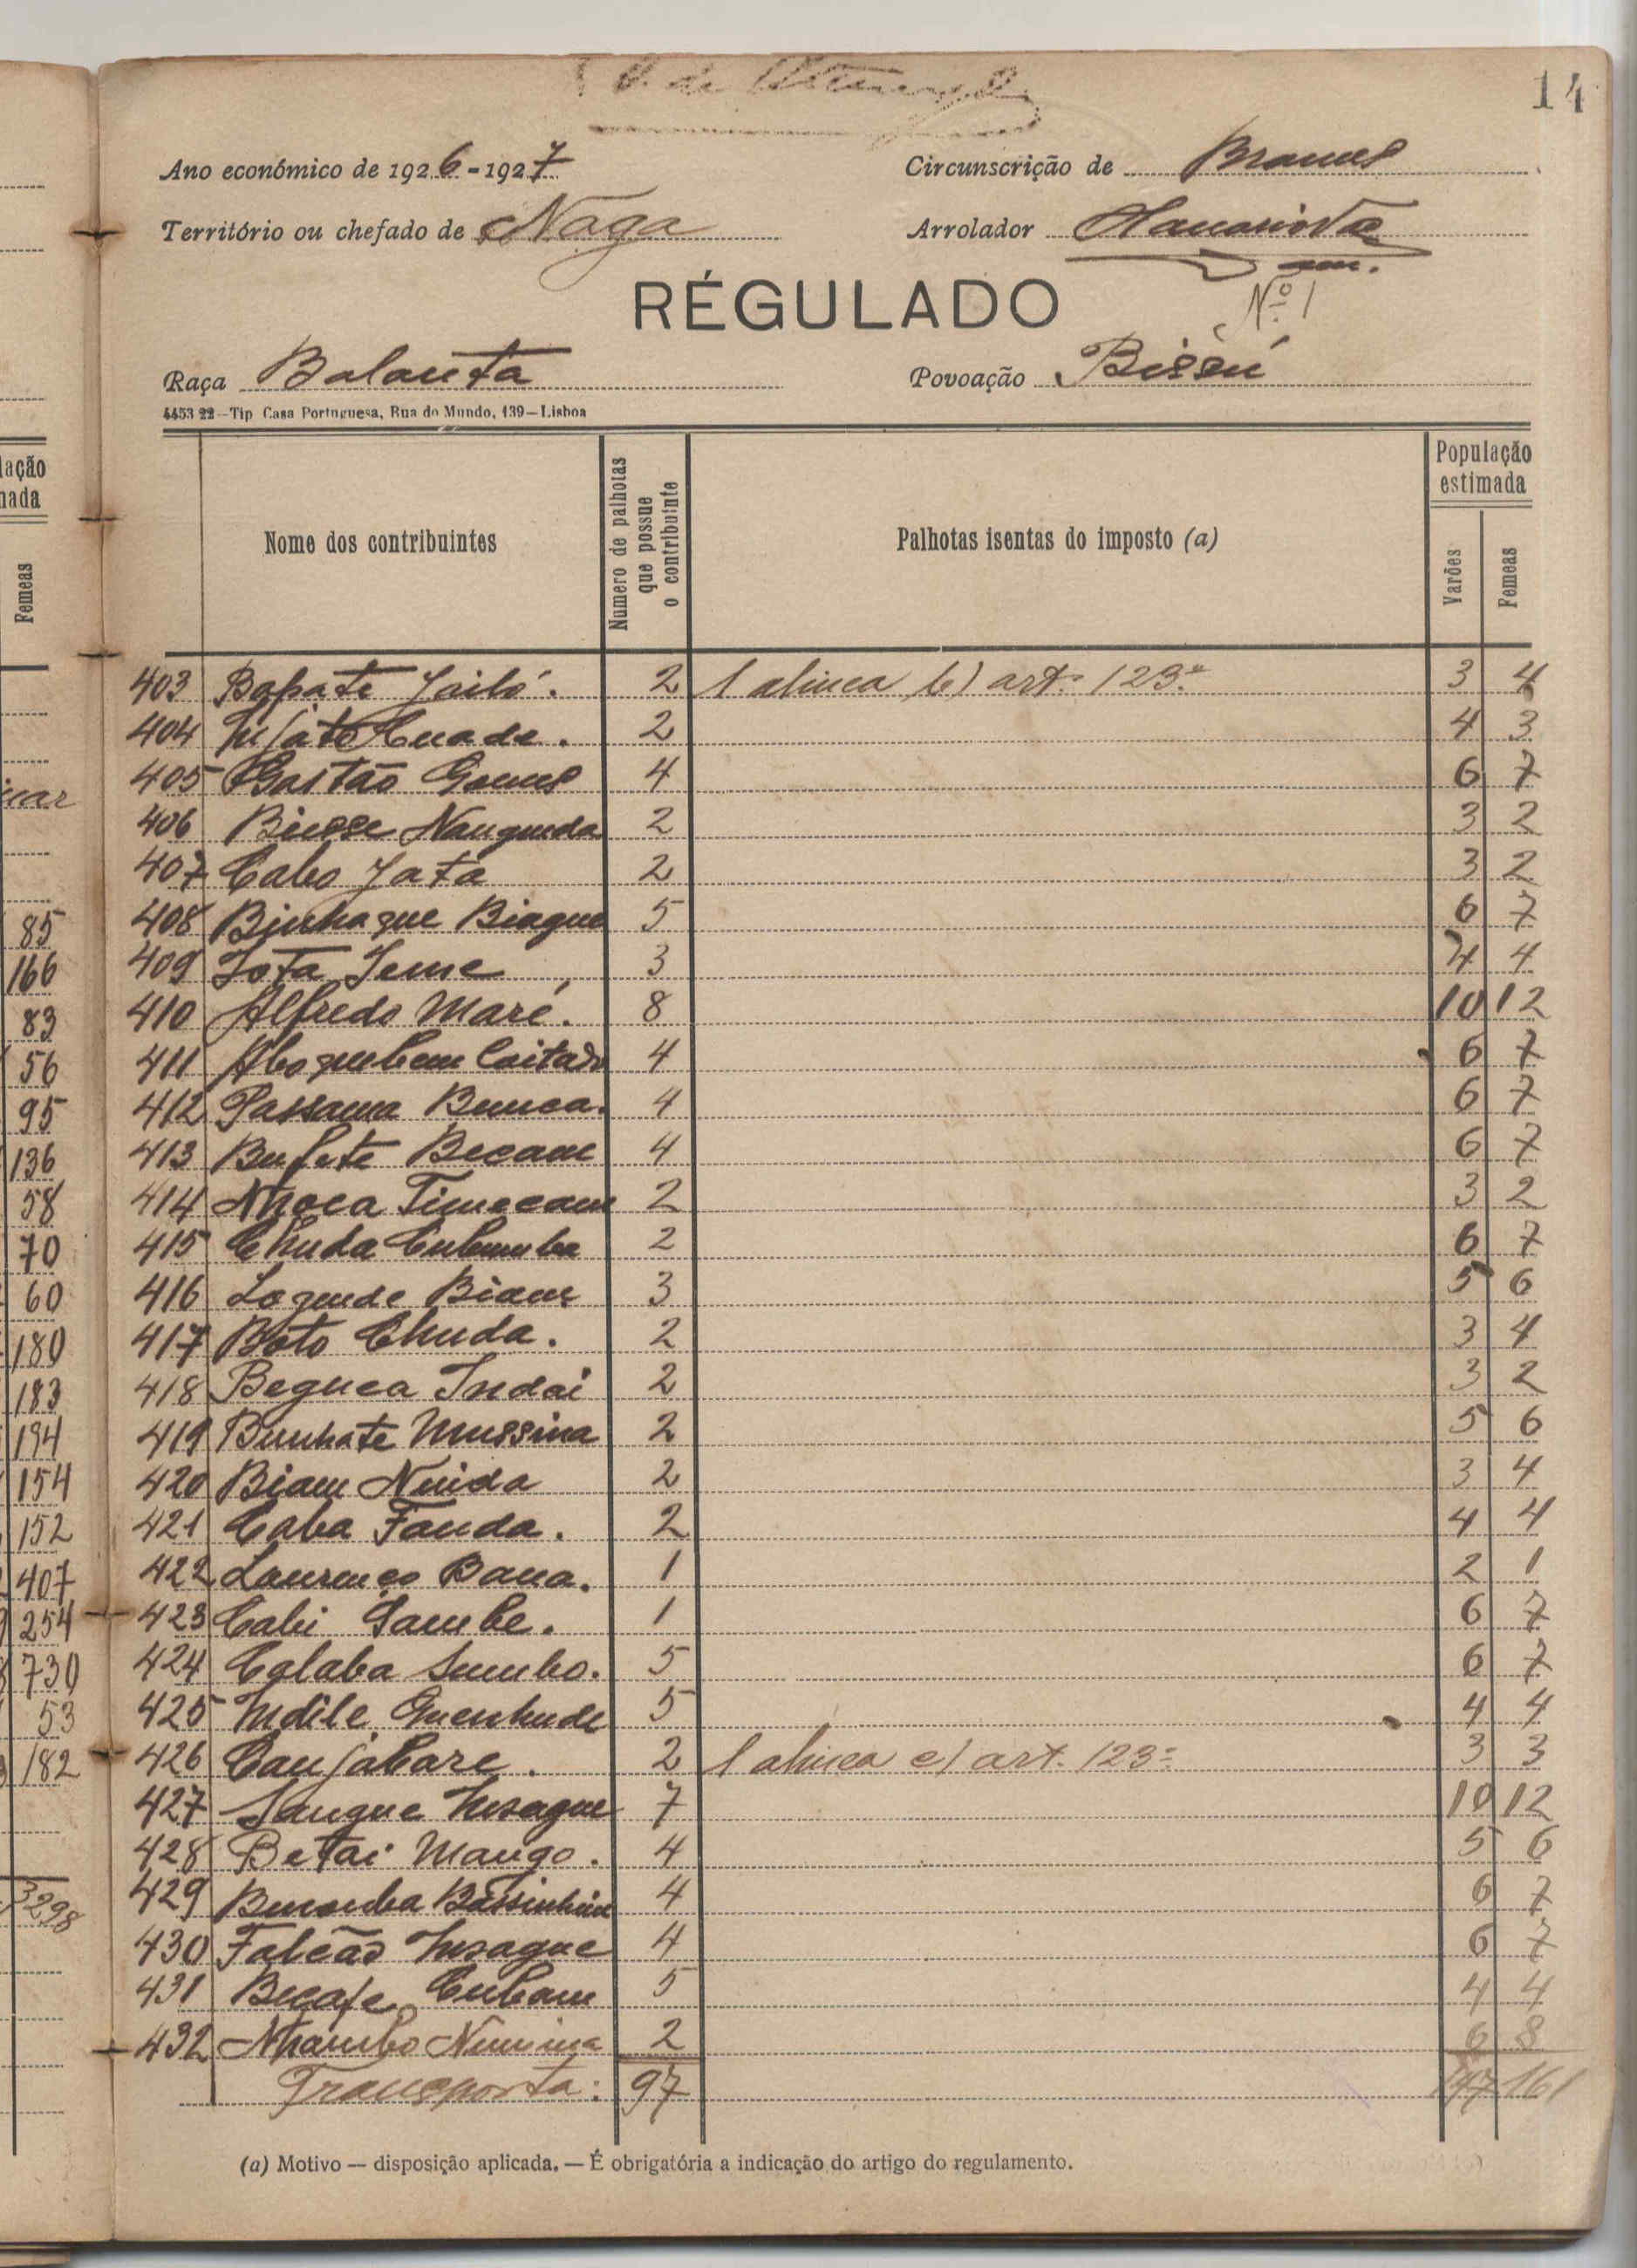 14
Ano económico de 1926-1927
Circunscrição de Brames
Território ou chefado de Naga
Arrolador
Nº 1
RÉGULADO
Raça Balanta
Povoação Bissú
4453 22—Tip Casa Portuguesa, Rua do Mundo, 139—Lisboa
Nome dos contribuintes
Numero de palhotas que possue o contribuinte
Palhotas isentas do imposto (a)
População estimada
Varões
Femeas
403 Bapate 2 1 alinea b) art.º 123.º 3 4
404 2 4 3
405 Bastão Gomes 4 6 7
406 Biesse Nanqueda 2 3 2
407 Cabo Jata 2 3 2
408 Binhaque Biague 5 6 7
409 Jota Jeme 3 4 4
410 Alfredo Maré. 8 10 12
411 4 6 7
412 Passama Bunca. 4 6 7
413 Bufete Became 4 6 7
414 Nhoca Timecam 2 3 2
415 Chuda Cubumba 2 6 7
416 Biam 3 5 6
417 Boto Chuda. 2 3 4
418 Beguca Indai 2 3 2
419 Bunhate Mussina 2 5 6
420 Biam Nuida 2 3 4
421 Caba Fanda. 2 4 4
422 Lourenço Bana. 1 2 1
423 Cabi Sambe. 1 6 7
424 Calaba Sumbo. 5 6 7
425 Indile 5 4 4
426 Canjabare. 2 1 alinea c) art. 123º 3 3
427 Sangue Insague 7 10 12
428 Betai Mango. 4 5 6
429 4 6 7
430 Falcão Insague 4 6 7
431 Becafe Cubam 5 4 4
432 Nhambo 2 6 8
Transporta: 97 147 161
(a) Motivo — disposição aplicada. — É obrigatória a indicação do artigo do regulamento.
lação
nada
Femeas
85
166
83
56
95
136
58
70
60
180
183
194
154
152
407
254
730
53
182
3298